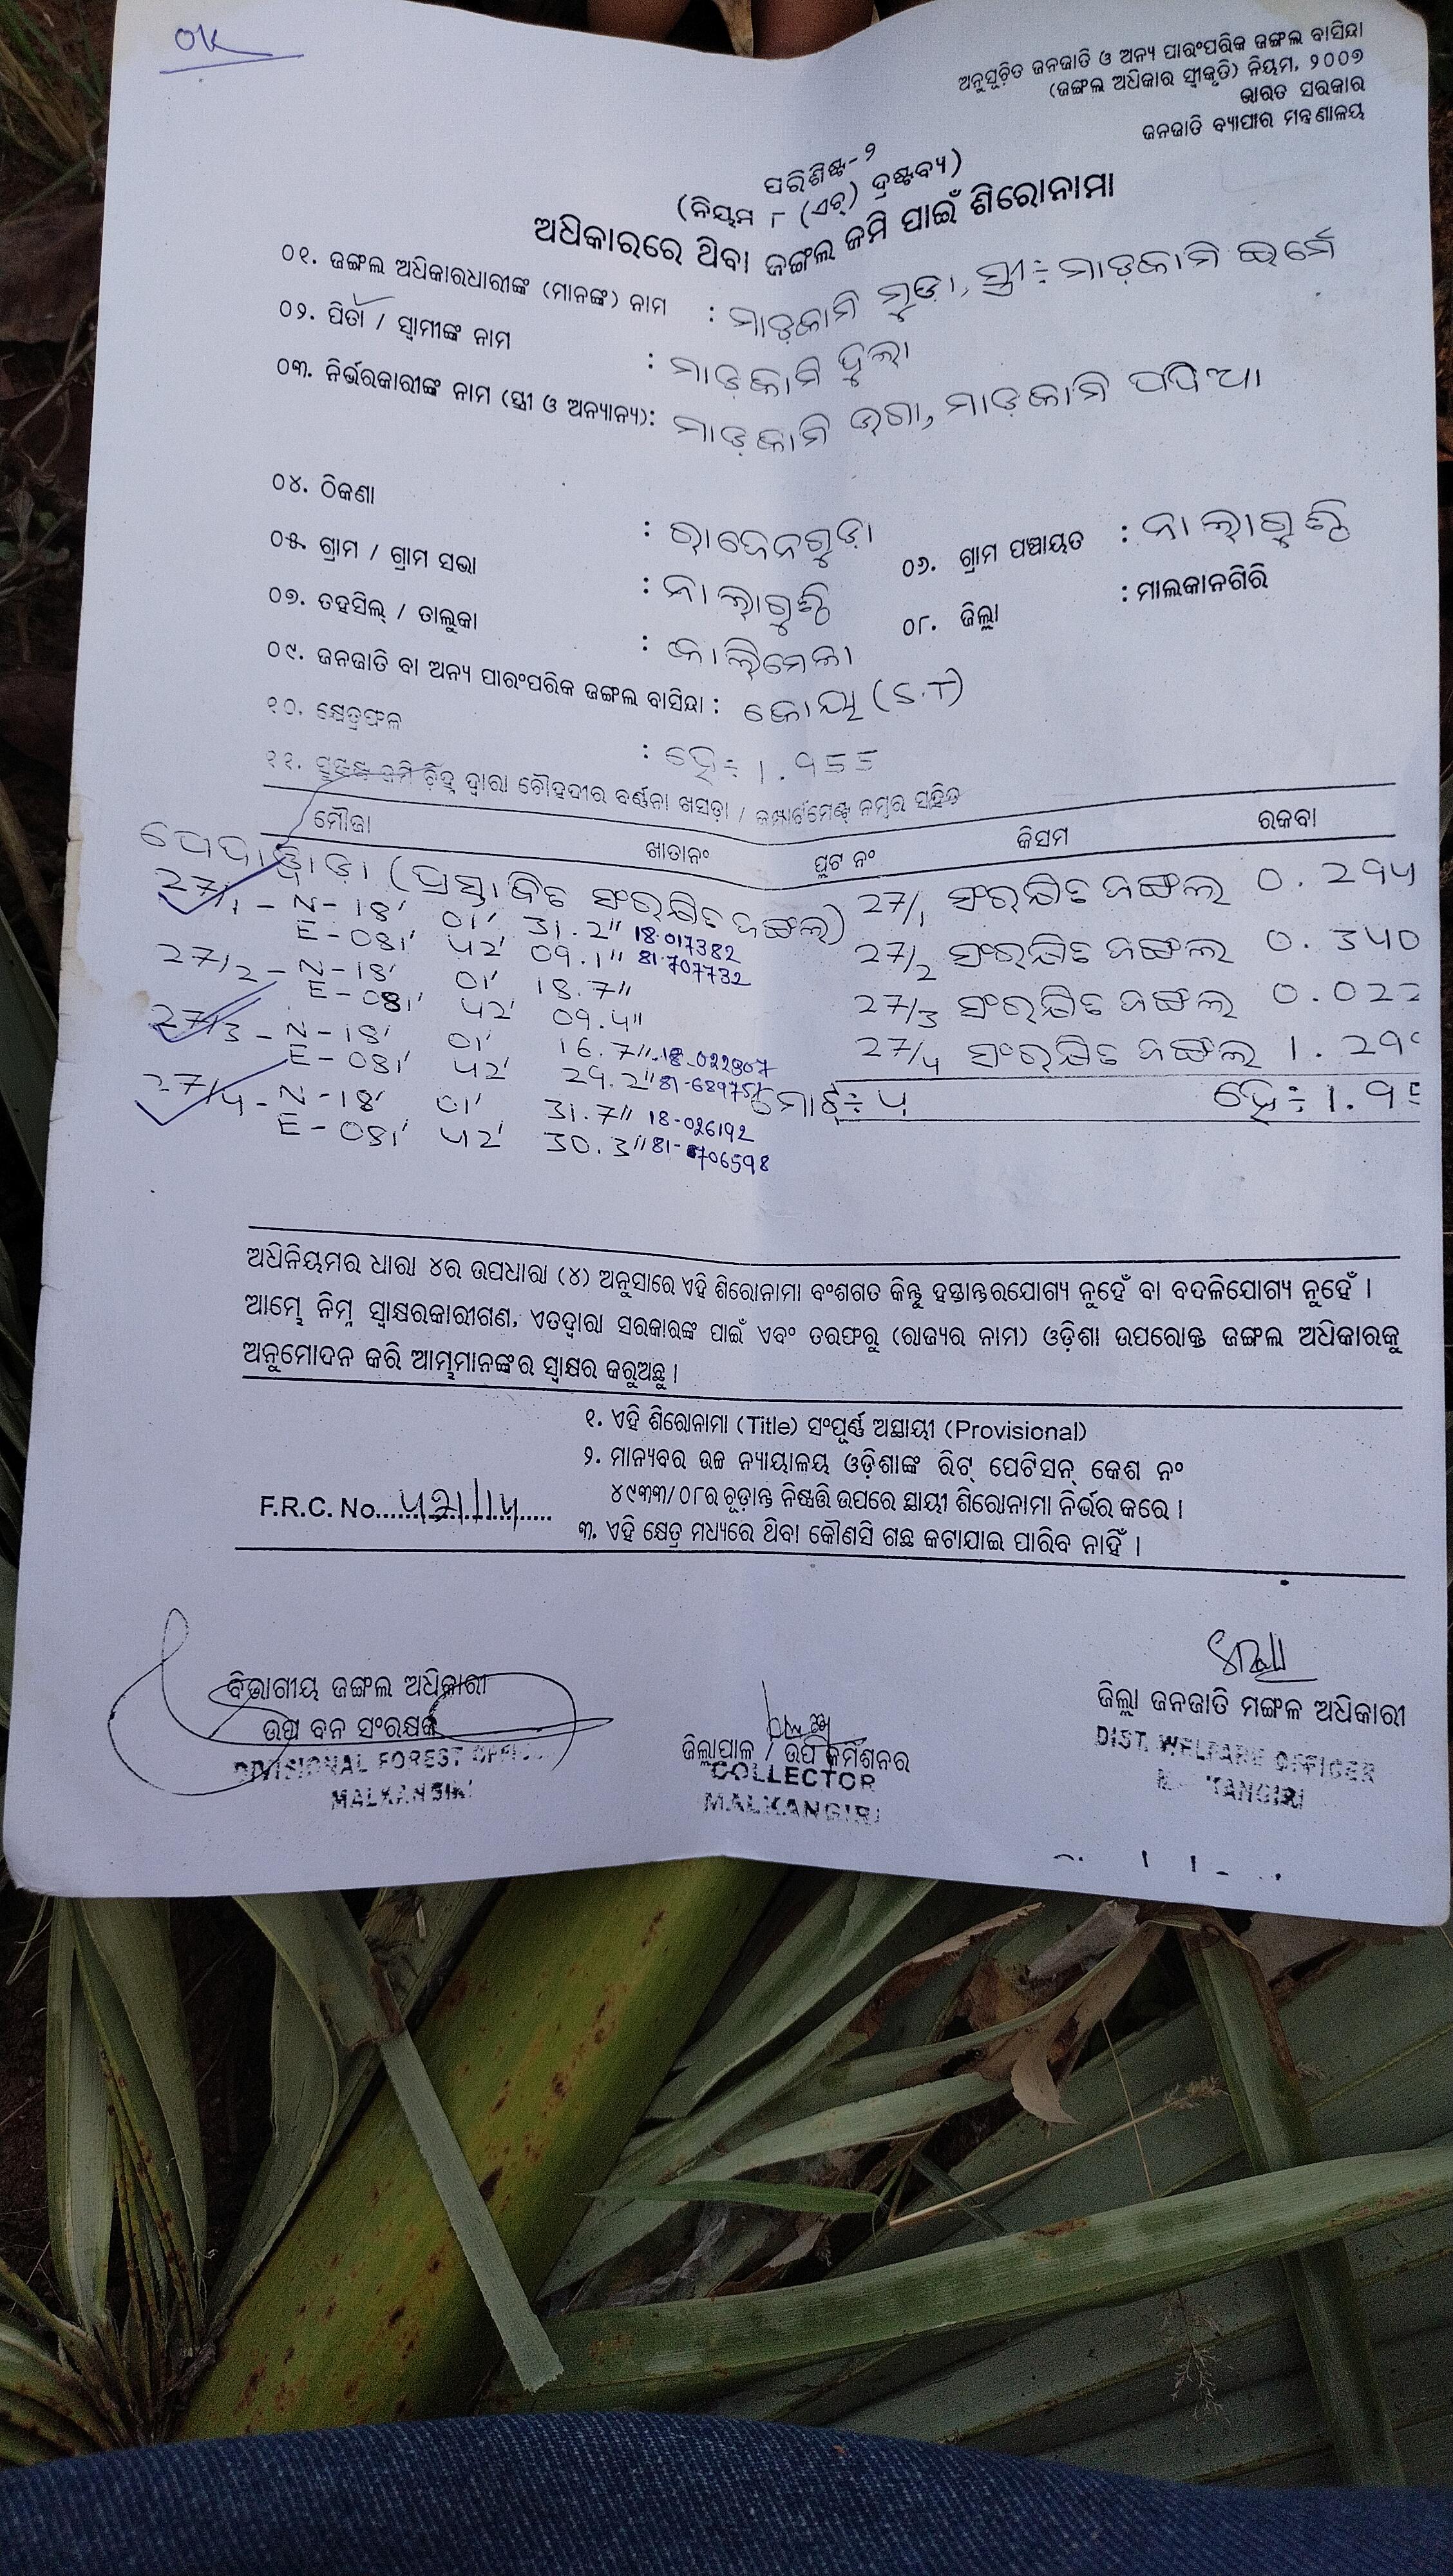 OK
ଅନୁସୂଚିତ ଜନଜାତି ଓ ଅନ୍ୟ ପାରଂପରିକ ଜଙ୍ଗଲ ବାସିନ୍ଦା
(ଜଙ୍ଗଲ ଅଧିକାର ସ୍ୱୀକୃତି) ନିୟମ, ୨୦୦୭
ଭାରତ ସରକାର
ଜନଜାତି ବ୍ୟାପାର ମନ୍ତ୍ରଣାଳୟ
ପରିଶିଷ୍ଟ-୨
(ନିୟମ ୮ (ଏଚ୍) ଦ୍ରଷ୍ଟବ୍ୟ)
ଅଧିକାରରେ ଥିବା ଜଙ୍ଗଲ ଜମି ପାଇଁ ଶିରୋନାମା
୦୧. ଜଙ୍ଗଲ ଅଧିକାରଧାରୀଙ୍କ (ମାନଙ୍କ) ନାମ : ମାଡ଼କାମି ମୁଡା, ସ୍ତ୍ରୀ÷ ମାଡ଼କାମି ଇର୍ମେ
୦୨. ପିତା / ସ୍ୱାମୀଙ୍କ ନାମ : ମାଡ଼କାମି ଦୁଲା
୦୩. ନିର୍ଭରକାରୀଙ୍କ ନାମ (ସ୍ତ୍ରୀ ଓ ଅନ୍ୟାନ୍ୟ): ମାଡ଼କାମି ଉଗା, ମାଡ଼କାମି
୦୪. ଠିକଣା :
୦୫. ଗ୍ରାମ / ଗ୍ରାମ ସଭା : ନାଲାଗୁଣ୍ଠି ୦୬. ଗ୍ରାମ ପଞ୍ଚାୟତ : ନାଲାଗୁଣ୍ଠି
୦୭. ତହସିଲ୍ / ତାଲୁକା : କାଲିମେଳା ୦୮. ଜିଲ୍ଲା : ମାଲକାନଗିରି
୦୯. ଜନଜାତି ବା ଅନ୍ୟ ପାରଂପରିକ ଜଙ୍ଗଲ ବାସିନ୍ଦା : କୋୟା (S.T)
୧୦. କ୍ଷେତ୍ରଫଳ : ହେ÷ 1.955
୧୧. ଜମି ଚିହ୍ନ ଦ୍ୱାରା ଚୌହଦୀର ବର୍ଣ୍ଣନା ଖସଡ଼ା / କମ୍ପାର୍ଟମେଣ୍ଟ ନମ୍ବର ସହିତ
ମୌଜା ଖାତାନଂ ପ୍ଲଟ ନଂ କିସମ ରକବା
(ପ୍ରସ୍ତାବିତ ସଂରକ୍ଷିତ ଜଙ୍ଗଲ)
27/1 - N-18' 01' 31.2" 18.017382
E-081' 42' 09.1" 81.707732
27/2 - N-18' 01' 18.7"
E-081' 42' 09.4"
27/3 - N-18' 01' 16.7" 18-022907
E-081' 42' 29.2" 81-689757
27/4 - N-18' 01' 31.7" 18-026192
E-081' 42' 30.3" 81-706598
27/1 ସଂରକ୍ଷିତ ଜଙ୍ଗଲ 0.294
27/2 ସଂରକ୍ଷିତ ଜଙ୍ଗଲ 0.340
27/3 ସଂରକ୍ଷିତ ଜଙ୍ଗଲ 0.022
27/4 ସଂରକ୍ଷିତ ଜଙ୍ଗଲ 1.29
ମୋଟ୍÷ ୪ ହେ÷ 1.9
ଅଧିନିୟମର ଧାରା ୪ର ଉପଧାରା (୪) ଅନୁସାରେ ଏହି ଶିରୋନାମା ବଂଶଗତ କିନ୍ତୁ ହସ୍ତାନ୍ତରଯୋଗ୍ୟ ନୁହେଁ ବା ବଦଳିଯୋଗ୍ୟ ନୁହେଁ ।
ଆମ୍ଭେ ନିମ୍ନ ସ୍ୱାକ୍ଷରକାରୀଗଣ, ଏତଦ୍ୱାରା ସରକାରଙ୍କ ପାଇଁ ଏବଂ ତରଫରୁ (ରାଜ୍ୟର ନାମ) ଓଡ଼ିଶା ଉପରୋକ୍ତ ଜଙ୍ଗଲ ଅଧିକାରକୁ
ଅନୁମୋଦନ କରି ଆମ୍ଭମାନଙ୍କର ସ୍ୱାକ୍ଷର କରୁଅଛୁ ।
୧. ଏହି ଶିରୋନାମା (Title) ସଂପୂର୍ଣ୍ଣ ଅସ୍ଥାୟୀ (Provisional)
୨. ମାନ୍ୟବର ଉଚ୍ଚ ନ୍ୟାୟାଳୟ ଓଡ଼ିଶାଙ୍କ ରିଟ୍ ପେଟିସନ୍ କେଶ ନଂ
୪୯୩୩/୦୮ର ଚୂଡ଼ାନ୍ତ ନିଷ୍ପତ୍ତି ଉପରେ ସ୍ଥାୟୀ ଶିରୋନାମା ନିର୍ଭର କରେ ।
F.R.C. No.
୩. ଏହି କ୍ଷେତ୍ର ମଧ୍ୟରେ ଥିବା କୌଣସି ଗଛ କଟାଯାଇ ପାରିବ ନାହିଁ ।
ବିଭାଗୀୟ ଜଙ୍ଗଲ ଅଧିକାରୀ
ଉପ ବନ ସଂରକ୍ଷକ
DIVISIONAL FOREST OFFICER
MALKANGIRI
ଜିଲ୍ଲାପାଳ / ଉପ କମିଶନର
COLLECTOR
MALKANGIRI
ଜିଲ୍ଲା ଜନଜାତି ମଙ୍ଗଳ ଅଧିକାରୀ
DIST. WELFARE OFFICER